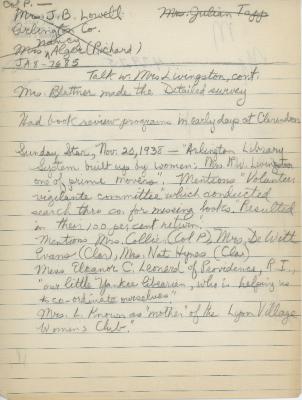 Col P. —
Mrs. J. B. Lowell Mrs. Julian Tapp
Arlington Co.
Nancy
Miss Alger (Richard)
JA 8-7685
Talk w. Mrs. Livingston, cont.
Mrs. Blattner made the Detailed survey
Had book review programs in early days at Clarendon
Sunday Star, Nov. 20, 1938 — "Arlington Library
System built up by women. Mrs. R. W. Livingston
one of prime movers". Mentions "Volunteer
vigilante committee" which conducted
search thro co. for missing books. Resulted
in their 100 per cent return.
Mentions Mrs. Collie (Col P), Mrs. De Witt
Evans (Clar), Mrs. Nat Hynes (Clar)
Miss Eleanor C. Leonard of Providence, R.I.,
"our little Yankee librarian, who is helping us
to co-ordinate ourselves."
Mrs. L. Known as "mother" of the Lyon Village
Women's Club."